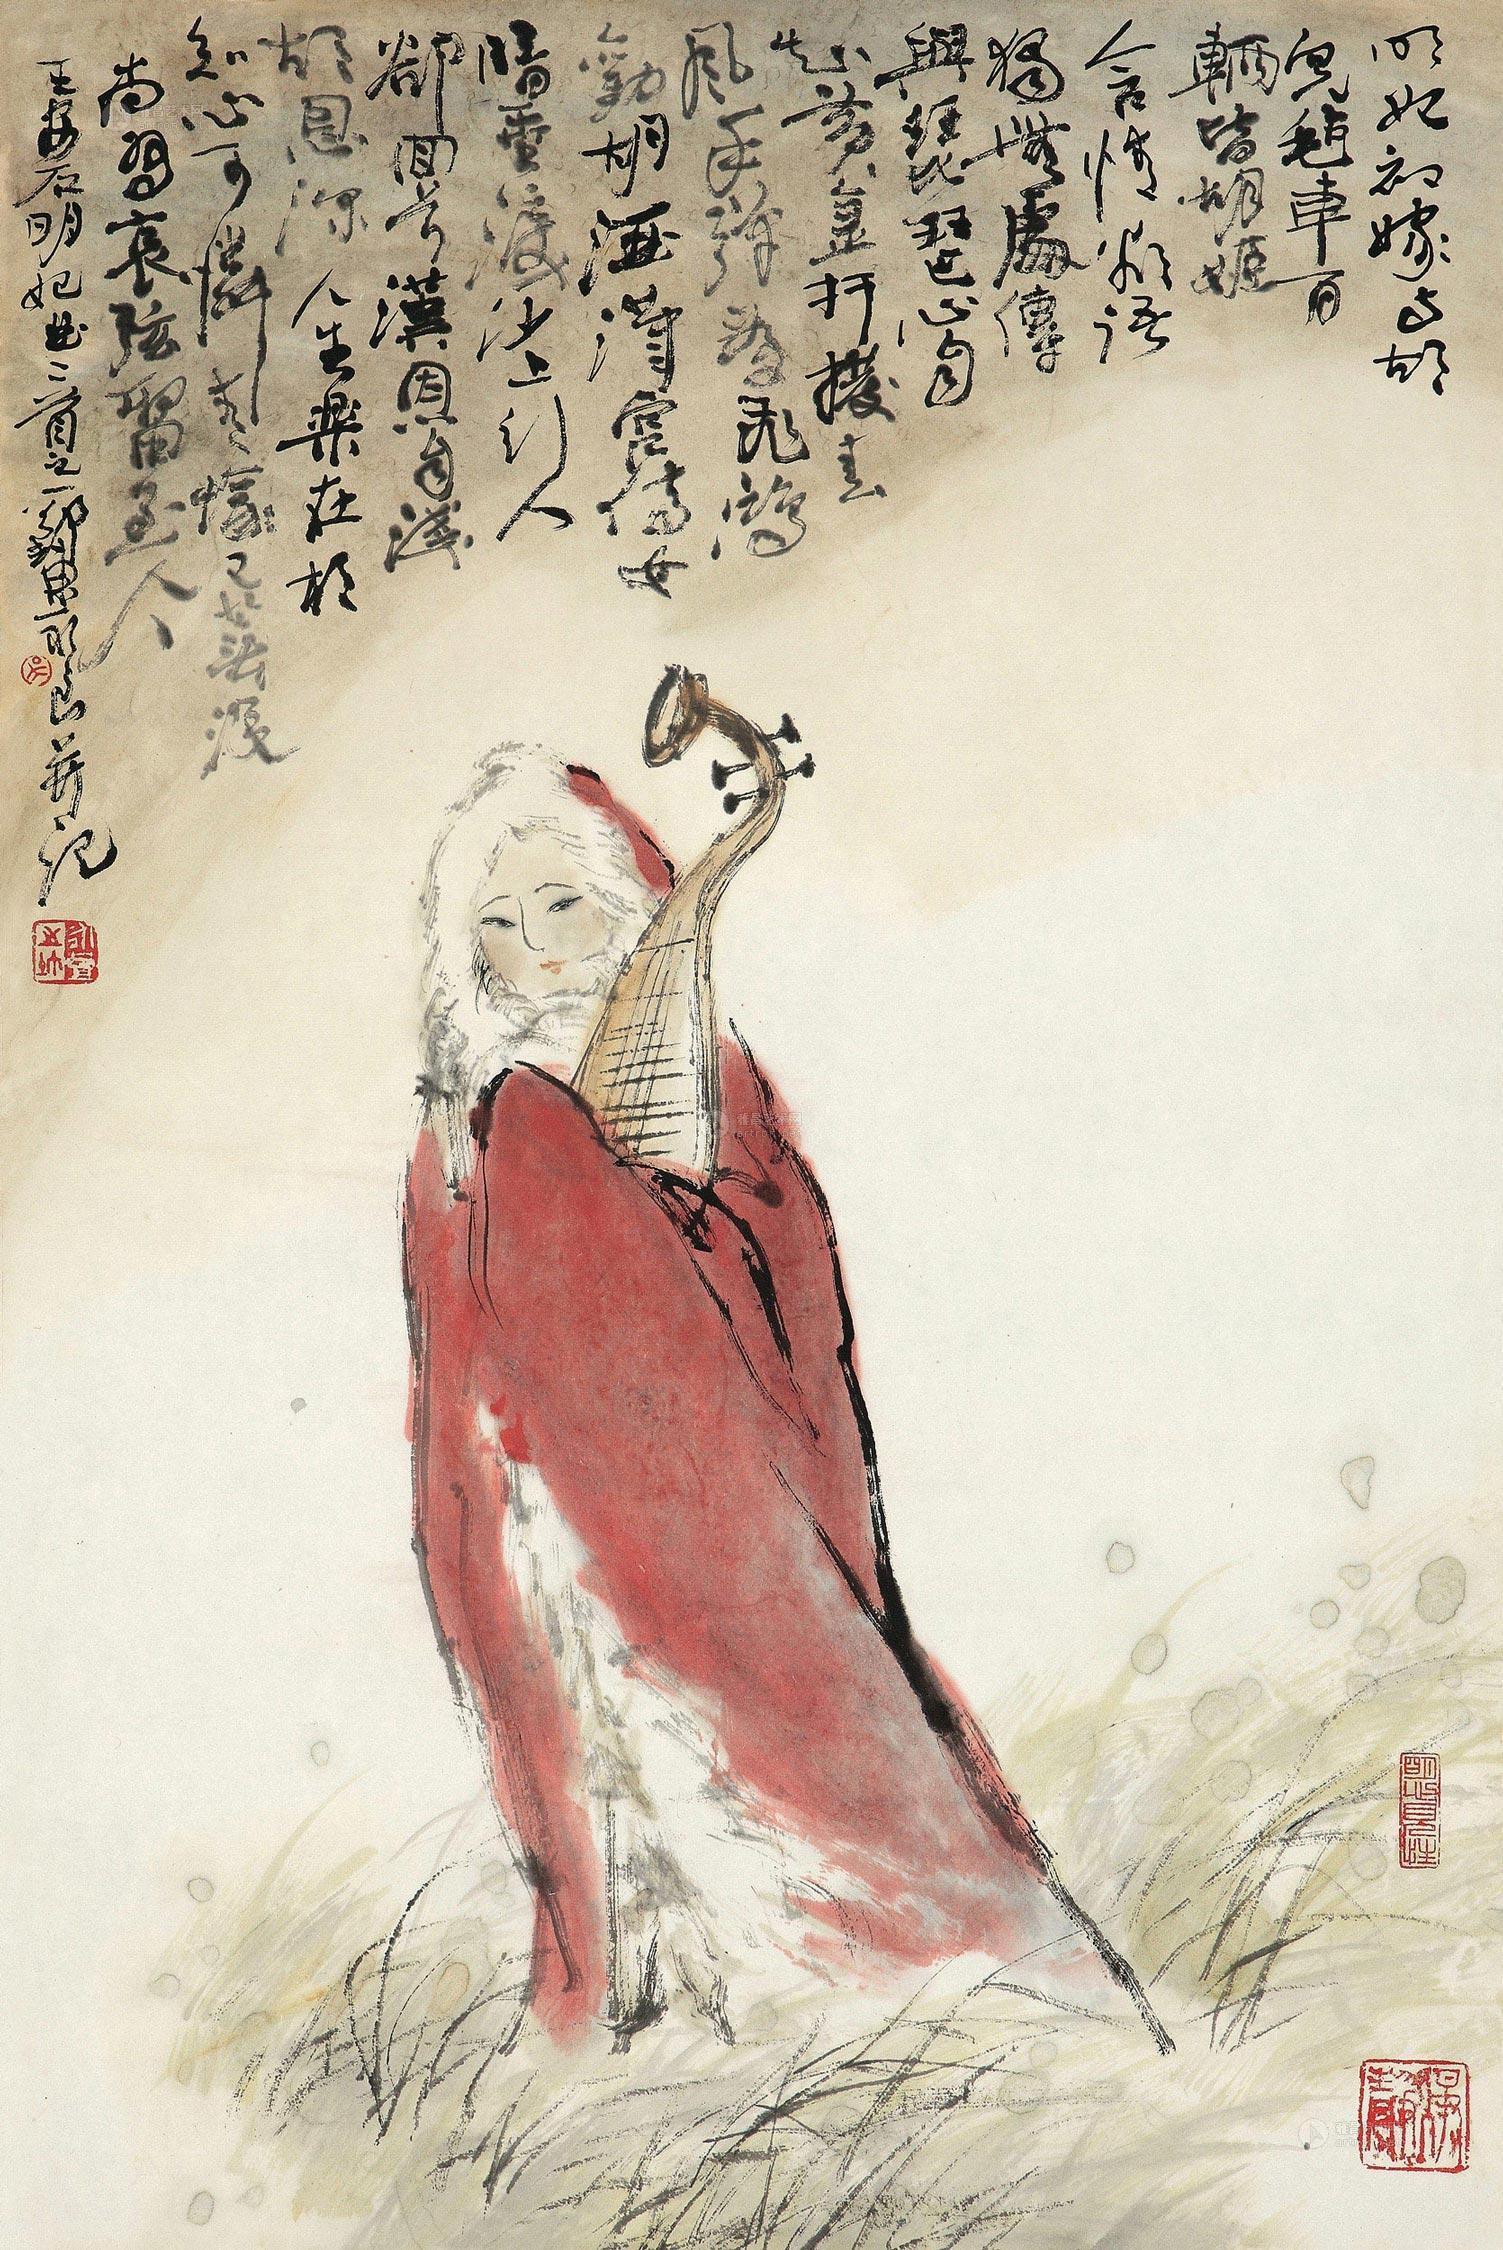 明妃初嫁与胡
兒氈車百
輛皆胡姬
含情欲語
獨無處傳
與琵琶心自
知黃金扞撥春
風手彈看飛鴻
勸胡酒漢宮侍女
暗垂淚沙上行人
卻回首漢恩自淺
胡恩深人生樂在相
知心可憐青塚已蕪沒
尚有哀弦留至今
王安石明妃曲二首之一 并記